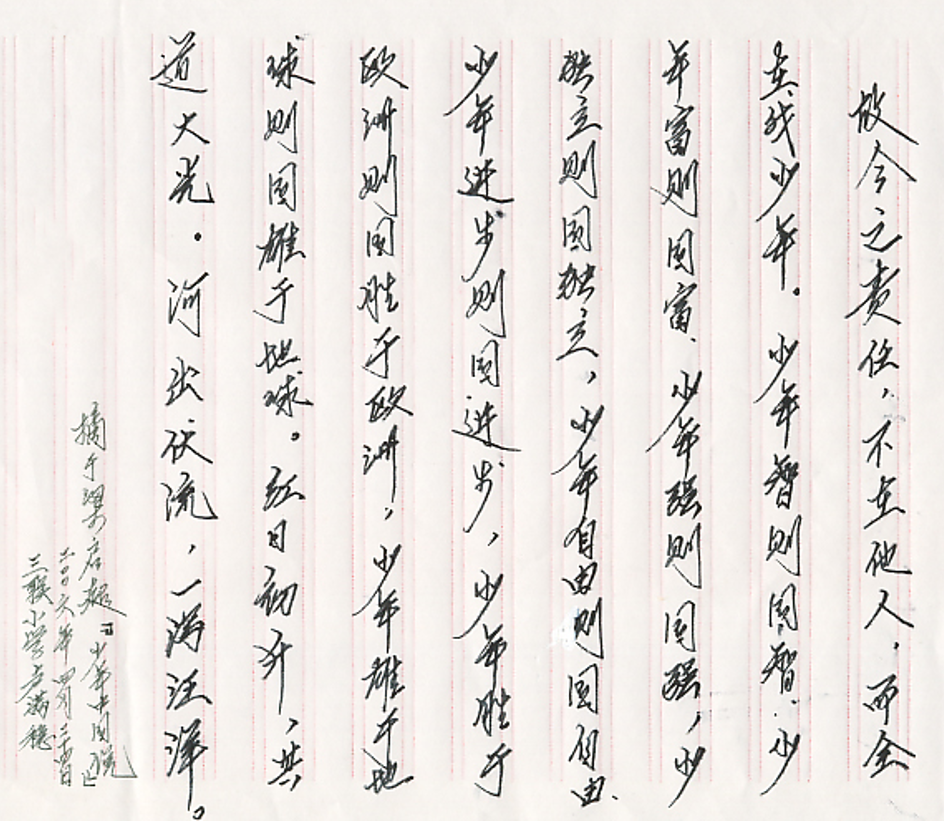 故今之责任，不在他人，而全
在我少年。少年智则国智.少
年富则国富.少年强则国强，少
独立则国独立，少年自由则国自由.
少年进步则国进步，少年胜于
欧洲则国胜于欧洲，少年雄于地
球则国雄于地球。红日初升，共
道大光．河出伏流，一泻汪洋。
摘于梁启超『少年中国说』
二00六年四月二十四日
三联小学卢满穗